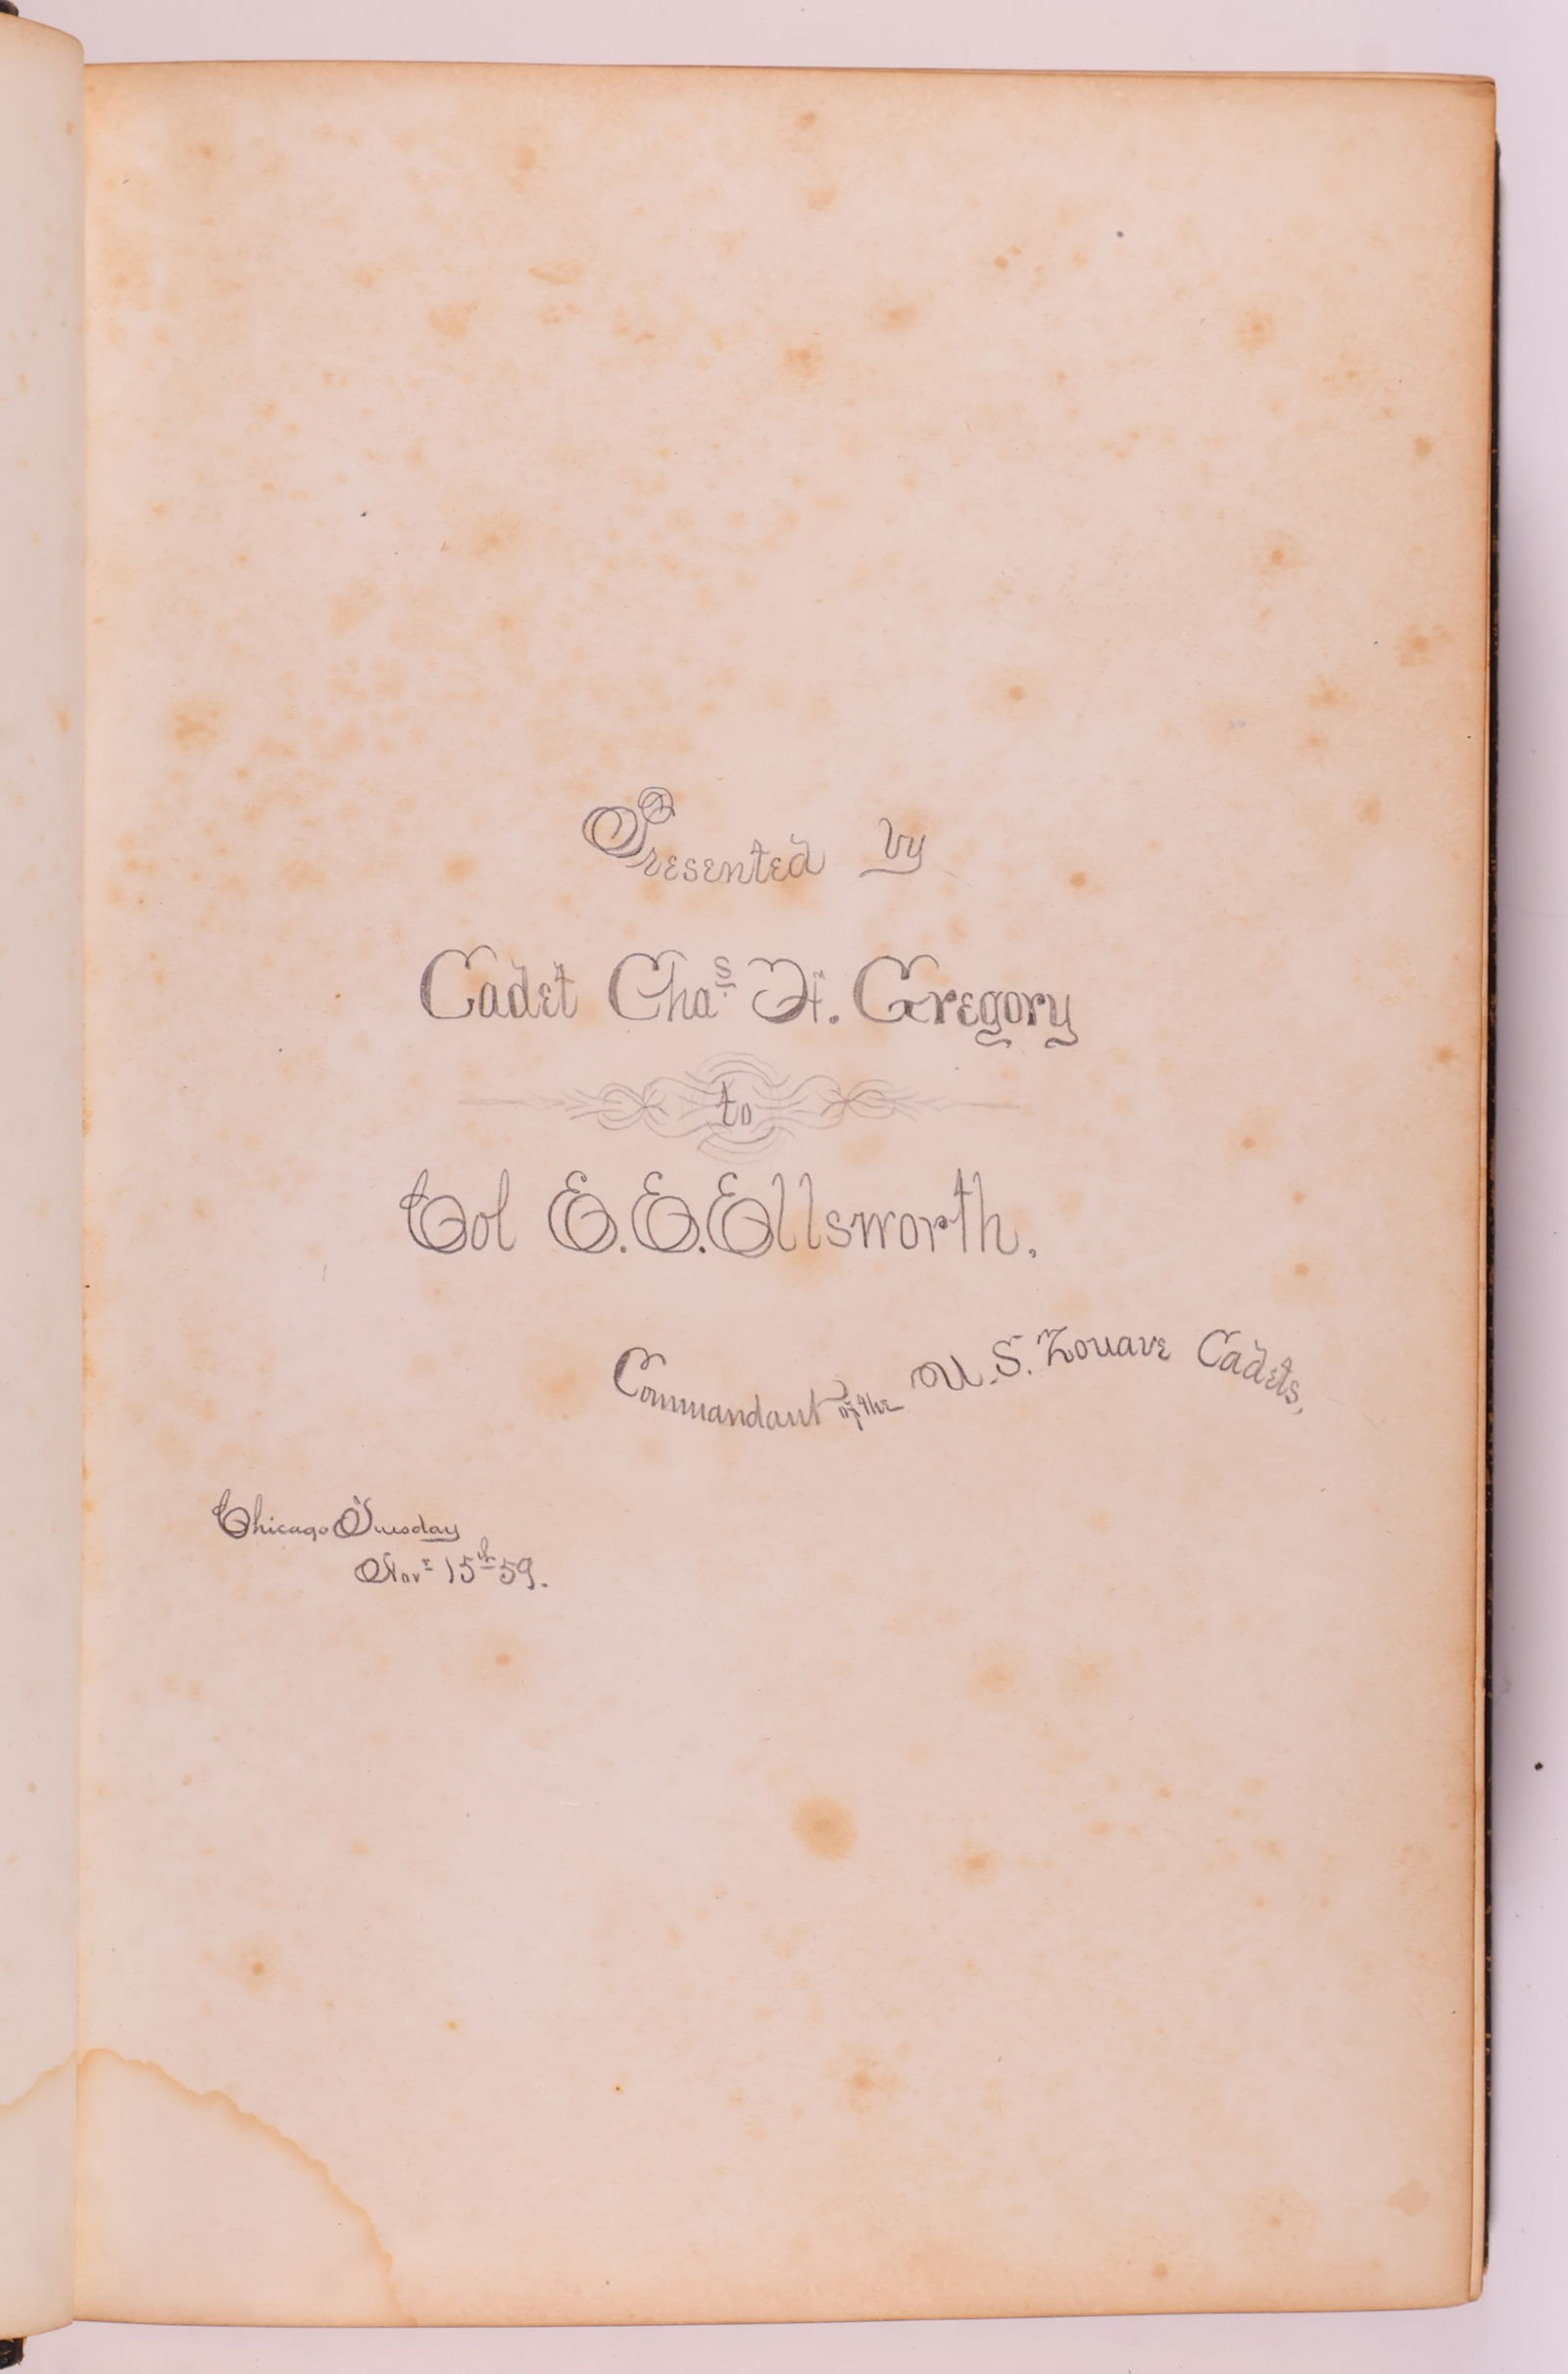 Presented by
Cadet Chas. H. Gregory
to
Col E. E. Ellsworth.
Commandant of the U.S. Zouave Cadets.
Chicago Tuesday
Novr 15th 59.